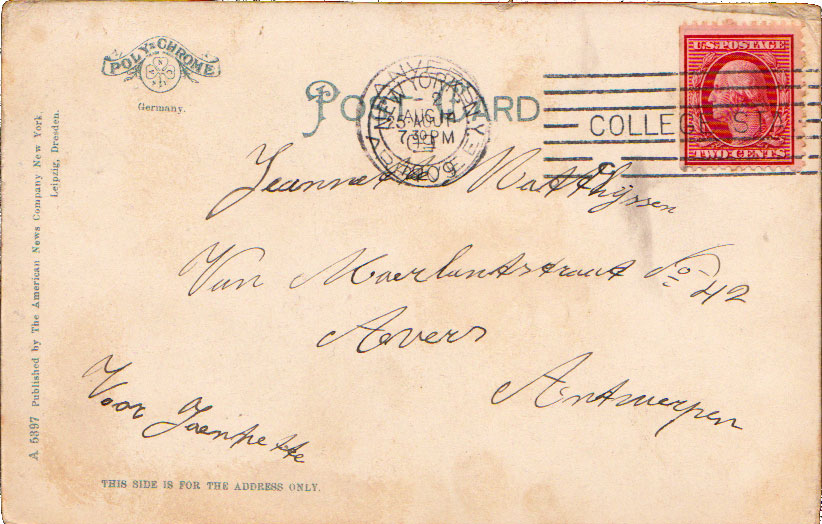 POLY-CHROME
Germany.
POST CARD
ANVERS
NEW YORK, N.Y.
AUG
25 AOUT
7 30 PM
1909
COLLEGE STA.
C
U.S. POSTAGE
TWO CENTS
Jeannette Matthijssen
Van Maerlantstraat No 42
Anvers
Antwerpen
Voor Jeannette
THIS SIDE IS FOR THE ADDRESS ONLY.
A 5397 Published by The American News Company New York.
Leipzig, Dresden.